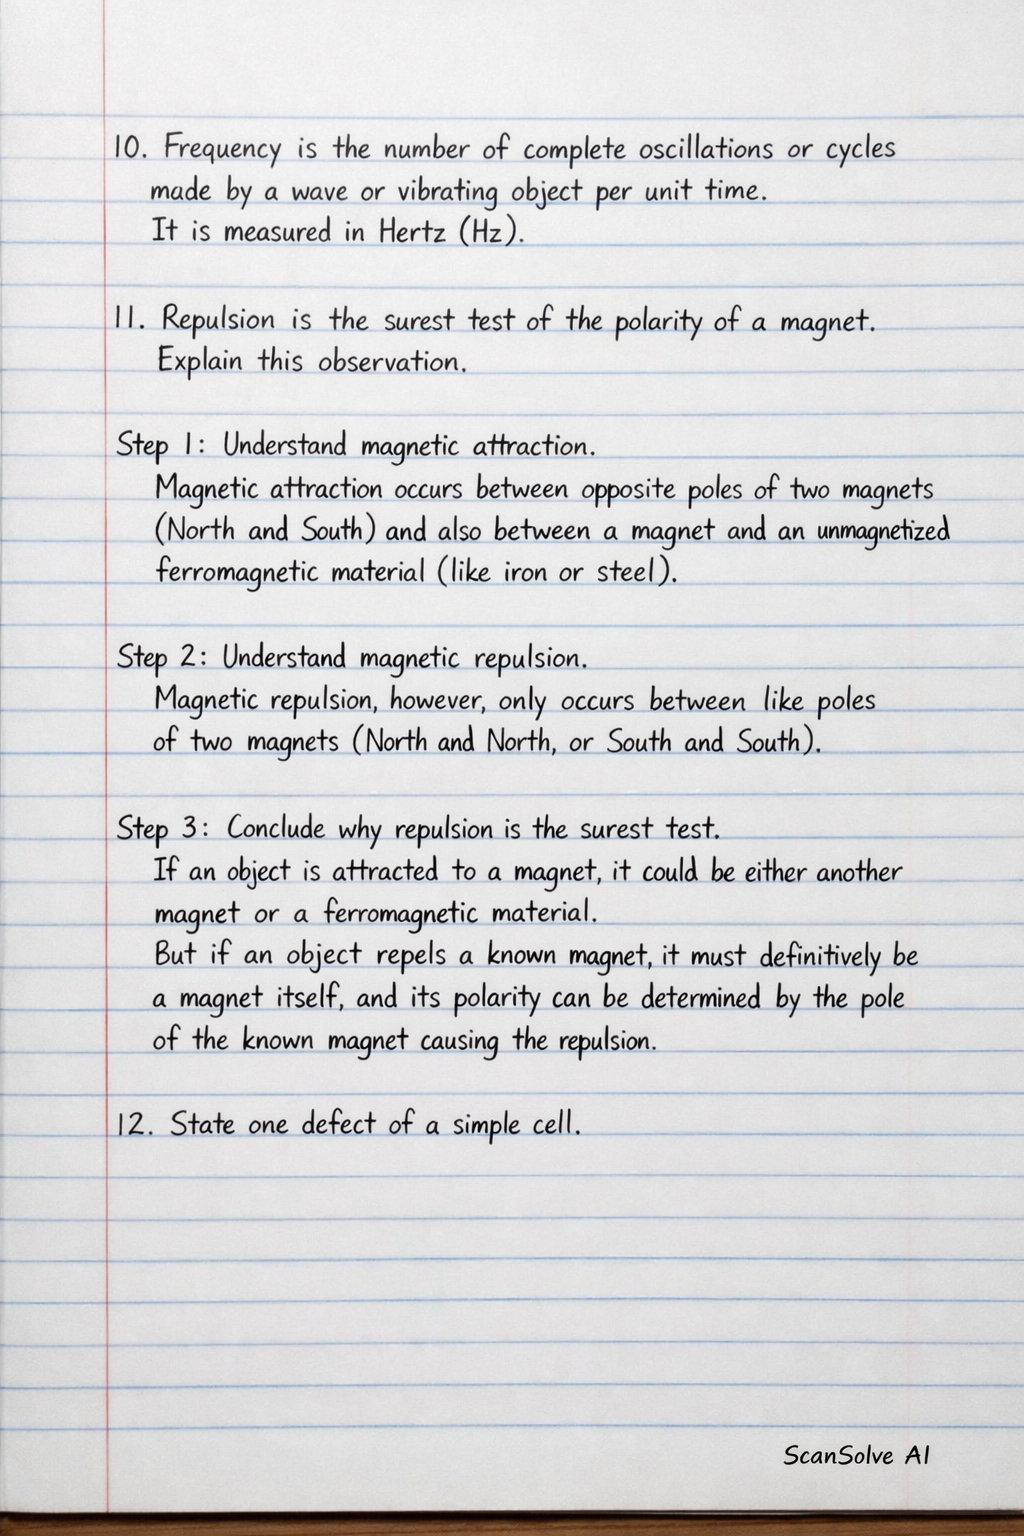 10. Frequency is the number of complete oscillations or cycles
made by a wave or vibrating object per unit time.
It is measured in Hertz (Hz).
11. Repulsion is the surest test of the polarity of a magnet.
Explain this observation.
Step 1: Understand magnetic attraction.
Magnetic attraction occurs between opposite poles of two magnets
(North and South) and also between a magnet and an unmagnetized
ferromagnetic material (like iron or steel).
Step 2: Understand magnetic repulsion.
Magnetic repulsion, however, only occurs between like poles
of two magnets (North and North, or South and South).
Step 3: Conclude why repulsion is the surest test.
If an object is attracted to a magnet, it could be either another
magnet or a ferromagnetic material.
But if an object repels a known magnet, it must definitively be
a magnet itself, and its polarity can be determined by the pole
of the known magnet causing the repulsion.
12. State one defect of a simple cell.
ScanSolve AI